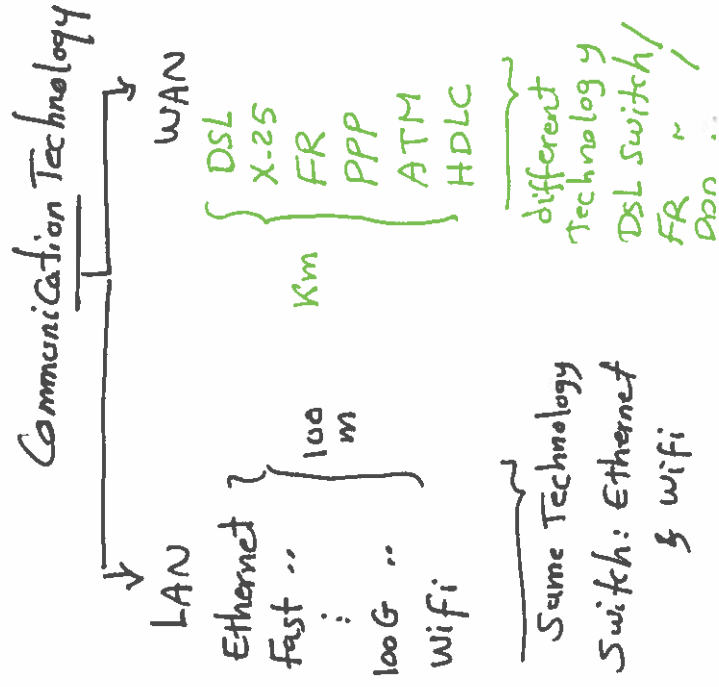 Communication Technology
LAN
Ethernet
Fast ..
:
100G ..
Wifi
100
m
Same Technology
Switch: Ethernet
& Wifi
WAN
DSL
X-25
FR
PPP
ATM
HDLC
Km
different
Technology
DSL Switch/
FR " /